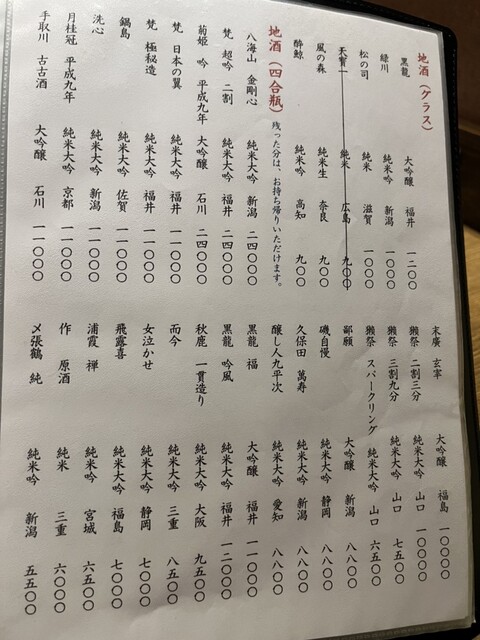 地酒（グラス）
黒龍 大吟醸 福井 一二〇〇
緑川 純米吟 新潟 一〇〇〇
松の司 純米 滋賀 一〇〇〇
天寳一 純米 広島 九〇〇
風の森 純米生 奈良 九〇〇
酔鯨 純米吟 高知 九〇〇
地酒（四合瓶）残った分は、お持ち帰りいただけます。
八海山 金剛心 純米大吟 新潟 二四〇〇〇
梵 超吟 二割 純米大吟 福井 二四〇〇〇
菊姫 吟 平成九年 大吟醸 石川 二四〇〇〇
梵 日本の翼 純米大吟 福井 一一〇〇〇
梵 極秘造 純米大吟 福井 一一〇〇〇
鍋島 純米大吟 佐賀 一一〇〇〇
洗心 純米大吟 新潟 一一〇〇〇
月桂冠 平成九年 純米大吟 京都 一一〇〇〇
手取川 古古酒 大吟醸 石川 一一〇〇〇
末廣 玄宰 大吟醸 福島 一〇〇〇〇
獺祭 二割三分 純米大吟 山口 一〇〇〇〇
獺祭 三割九分 純米大吟 山口 七五〇〇
獺祭 スパークリング 純米大吟 山口 六五〇〇
鄙願 大吟醸 新潟 八八〇〇
磯自慢 純米大吟 静岡 八八〇〇
久保田 萬寿 純米大吟 新潟 八八〇〇
醸し人九平次 純米大吟 愛知 八八〇〇
黒龍 福 大吟醸 福井 一一〇〇〇
黒龍 吟風 純米大吟 福井 一二〇〇〇
秋鹿 一貫造り 純米大吟 大阪 九五〇〇
而今 純米大吟 三重 八五〇〇
女泣かせ 純米大吟 静岡 七〇〇〇
飛露喜 純米大吟 福島 七〇〇〇
浦霞 禅 純米吟 宮城 六五〇〇
作 原酒 純米 三重 六〇〇〇
〆張鶴 純 純米吟 新潟 五五〇〇